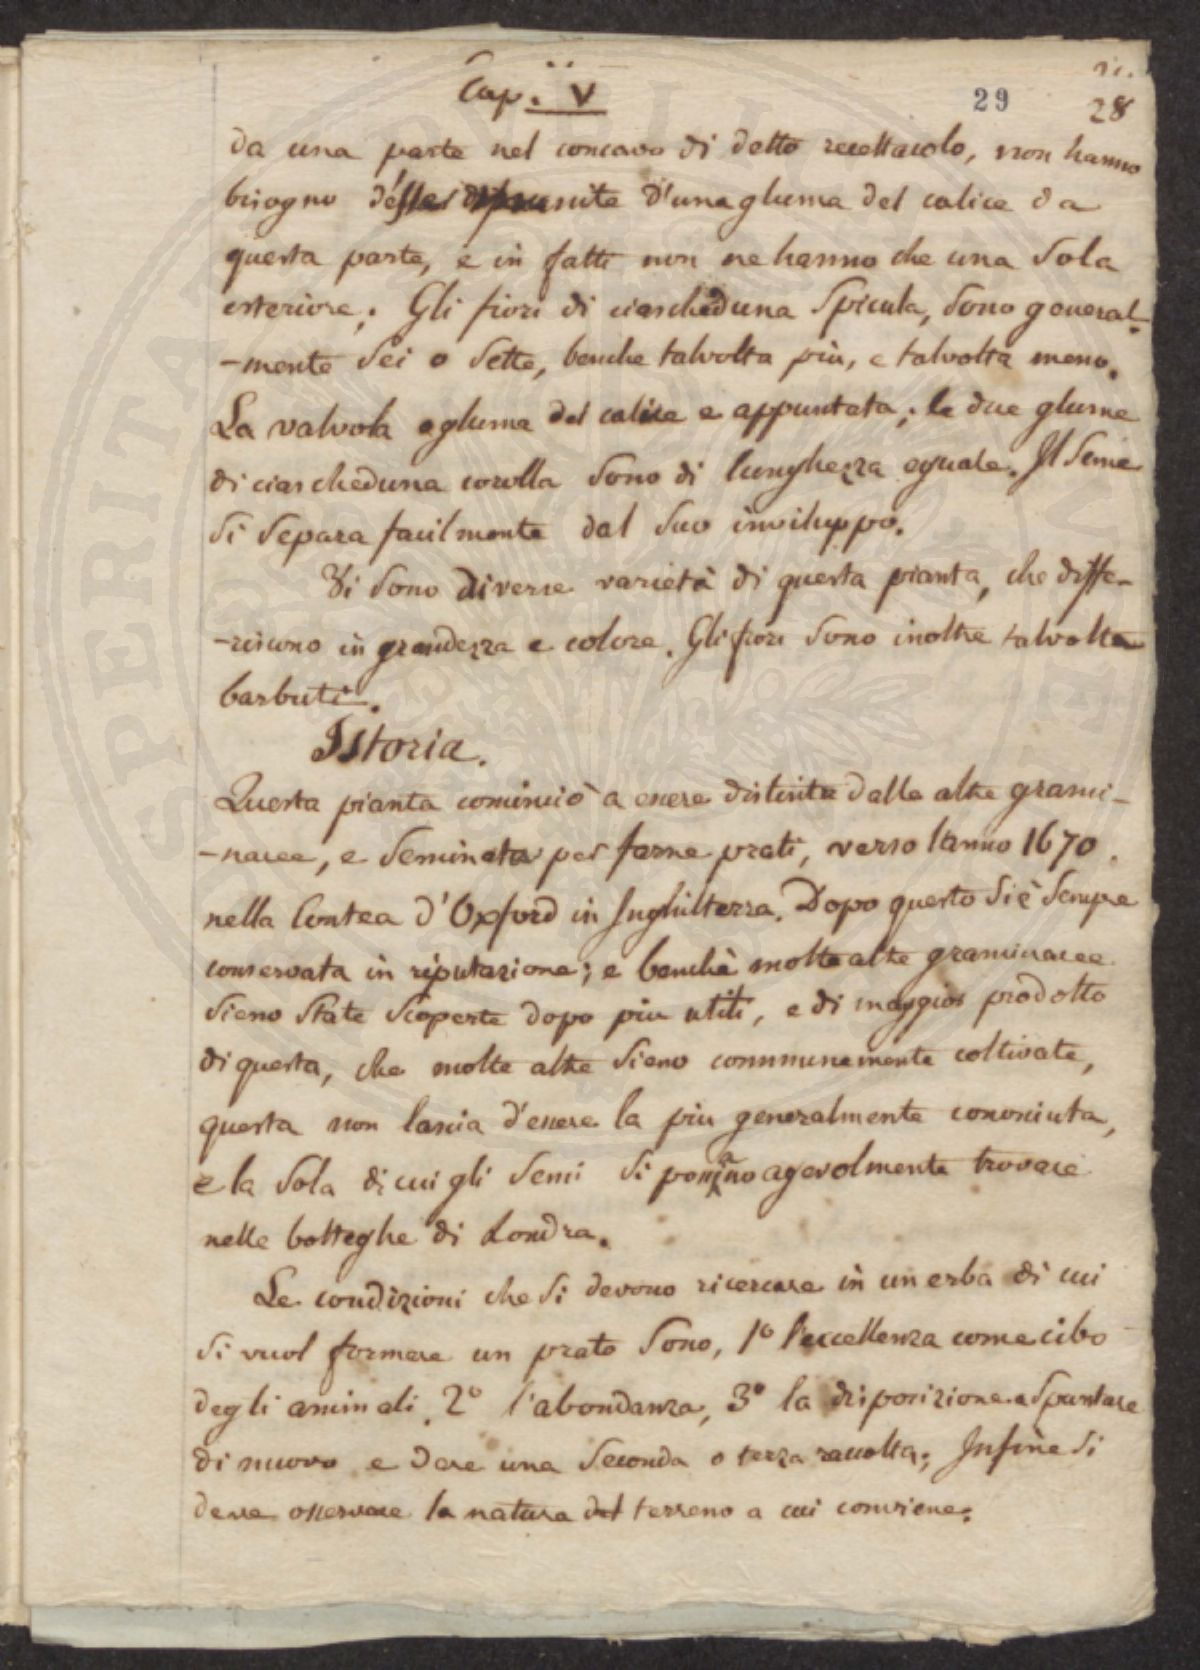 Cap. V
29
28
da una parte nel concavo di detto recettacolo, non hanno
bisogno d'esser munite d'una gluma del calice da
questa parte, e in fatti non ne hanno che una sola
esteriore; Gli fiori di ciascheduna Spicula, sono general-
-mente sei o sette, benche talvolta più, e talvolta meno.
La valvola o gluma del calice e appuntata; le due glume
di ciascheduna corolla sono di lunghezza eguale. Il seme
si separa facilmente dal suo inviluppo.
Vi sono diverse varietà di questa pianta, che diffe-
-riscono in grandezza e colore. Gli fiori sono inoltre talvolta
barbuti.
Istoria.
Questa pianta cominciò a essere distinta dalle altre grami-
-nacee, e seminata per farne prati, verso l'anno 1670.
nella Contea d'Oxford in Inghilterra. Dopo questo si è sempre
conservata in riputazione; e benchè molte altre graminacee
sieno state scoperte dopo piu utili, e di maggior prodotto
di questa, che molte altre sieno communemente coltivate,
questa non lascia d'essere la piu generalmente conosciuta,
e la sola di cui gli semi si possano agevolmente trovare
nelle botteghe di Londra.
Le condizioni che si devono ricercare in un erba di cui
si vuol formare un prato sono, 1º l'eccellenza come cibo
degli animali, 2º l'abondanza, 3º la disposizione a spuntare
di nuovo e dare una seconda o terza raccolta; Infine si
deve osservare la natura del terreno a cui conviene.